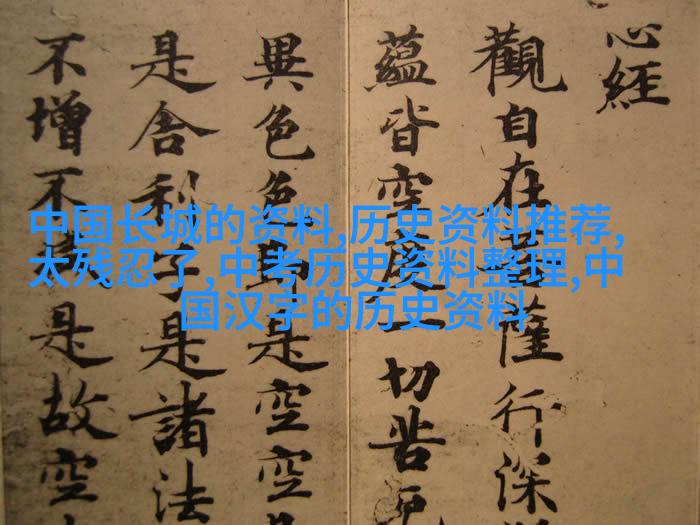 心經
觀自在菩薩行深
蘊皆空度一切苦厄
異色色即是空空
是舍利子是諸法
不增不減是故空
中国长城的资料,历史资料推荐,
太残忍了,中考历史资料整理,中
国汉字的历史资料